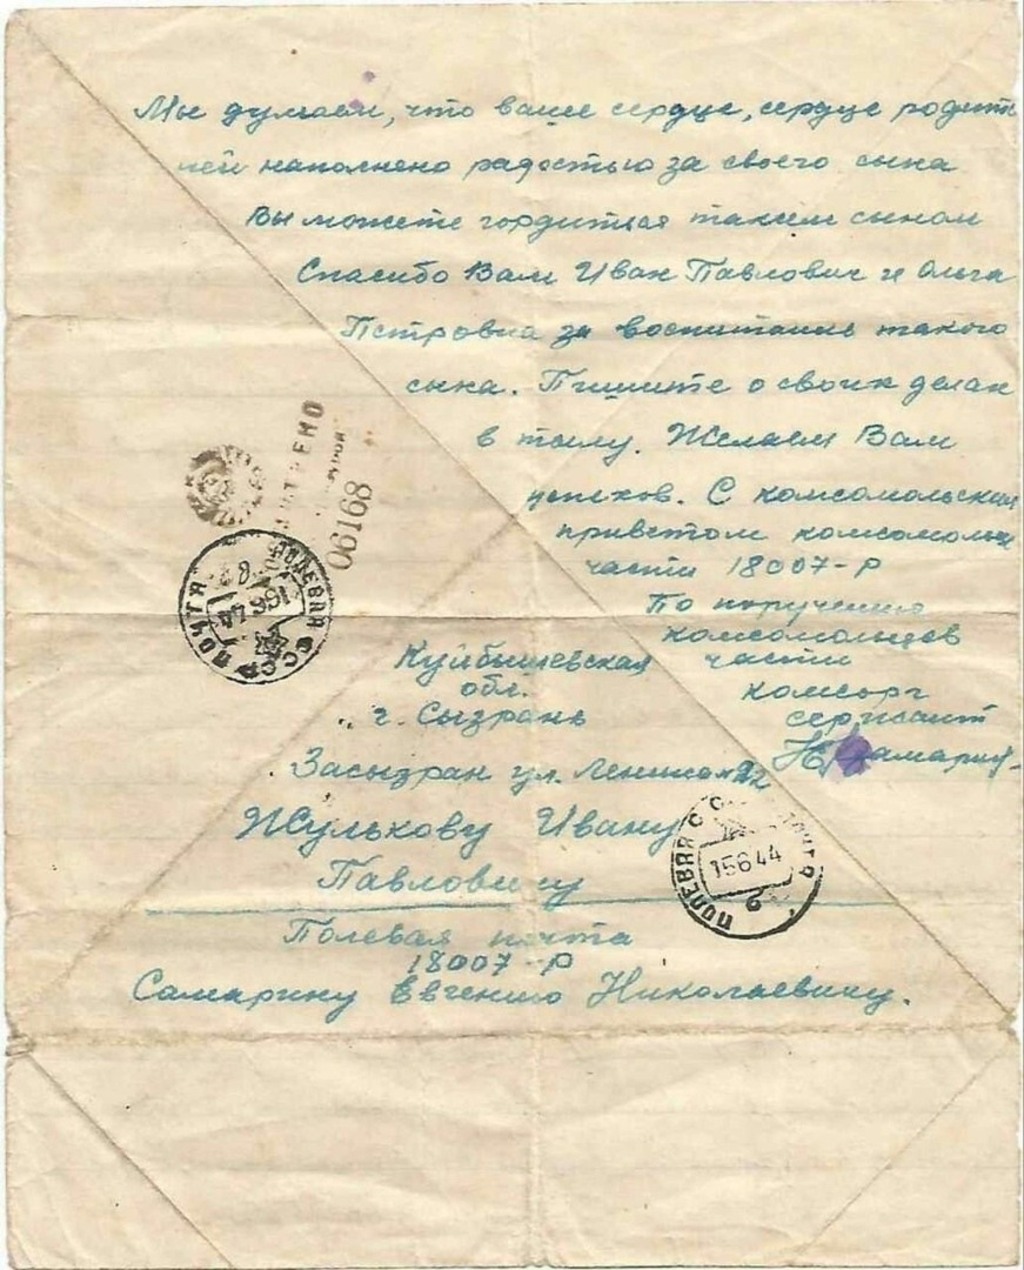 Мы думаем, что ваше сердце, сердце родите
лей наполнено радостью за своего сына
Вы можете гордиться таким сыном
Спасибо Вам Иван Павлович и Ольга
Петровна за воспитание такого
сына. Пишите о своих делах
в тылу. Желаем Вам
успехов. С комсомольским
приветом комсомольцы
части 18007-Р
По поручению
комсомольцев
части
комсорг
сержант
Самарин
ПРОСМОТРЕНО
06168
ПОЛЕВАЯ ПОЧТА СССР
166 44
Куйбышевская
обл.
г. Сызрань
Засызран ул. Ленина 22
Жулькову Ивану
Павловичу
ПОЛЕВАЯ ПОЧТА
15 6 44
Полевая почта
18007-Р
Самарину Евгению Николаевичу.